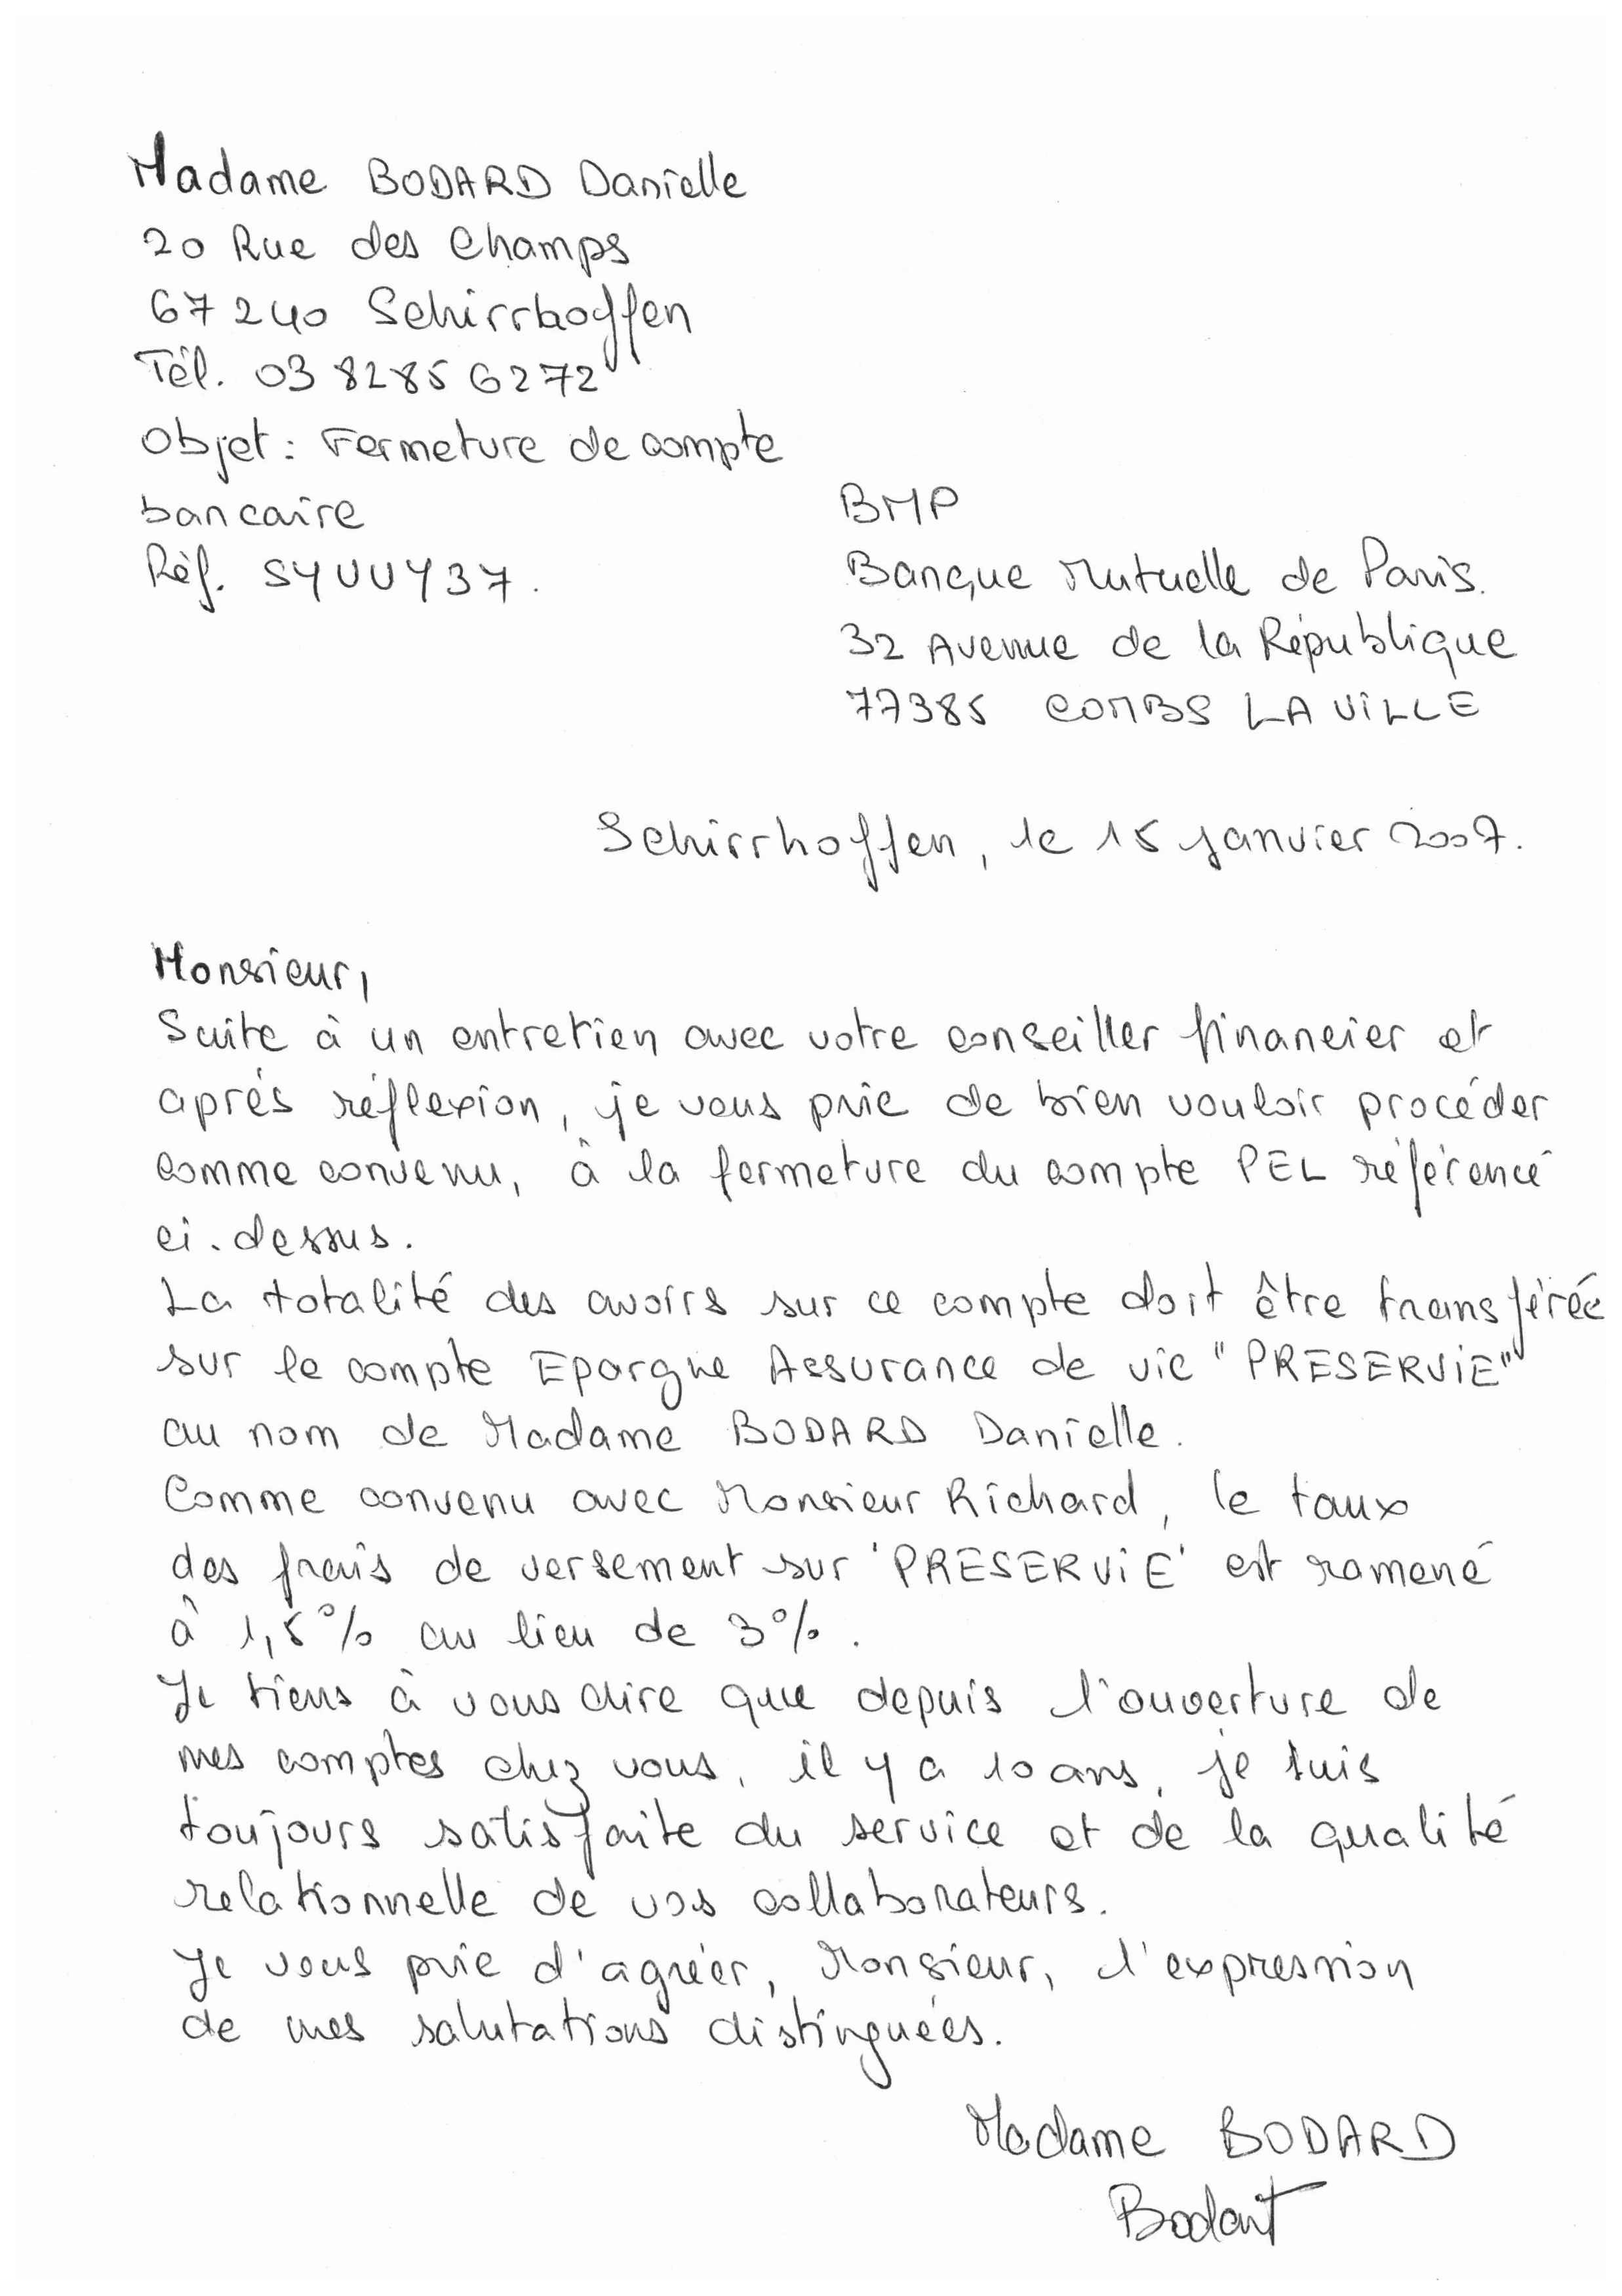 Madame BODARD Danielle
20 Rue des Champs
67240 Schirrhoffen
Tél. 03 82 85 62 72
Objet : Fermeture de compte
bancaire
Réf. SYUUY37.
BMP
Banque Mutuelle de Paris.
32 Avenue de la République
77385 COMBS LA VILLE
Schirrhoffen, le 15 janvier 2007.
Monsieur,
Suite à un entretien avec votre conseiller financier et
après réflexion, je vous prie de bien vouloir procéder
comme convenu, à la fermeture du compte PEL référencé
ci-dessus.
La totalité des avoirs sur ce compte doit être transférée
sur le compte Epargne Assurance de vie "PRESERVIE"
au nom de Madame BODARD Danielle.
Comme convenu avec Monsieur Richard, le taux
des frais de versement sur 'PRESERVIE' est ramené
à 1,5% au lieu de 3%.
Je tiens à vous dire que depuis l'ouverture de
mes comptes chez vous, il y a 10 ans, je suis
toujours satisfaite du service et de la qualité
relationnelle de vos collaborateurs.
Je vous prie d'agréer, Monsieur, l'expression
de mes salutations distinguées.
Madame BODARD
Bodart